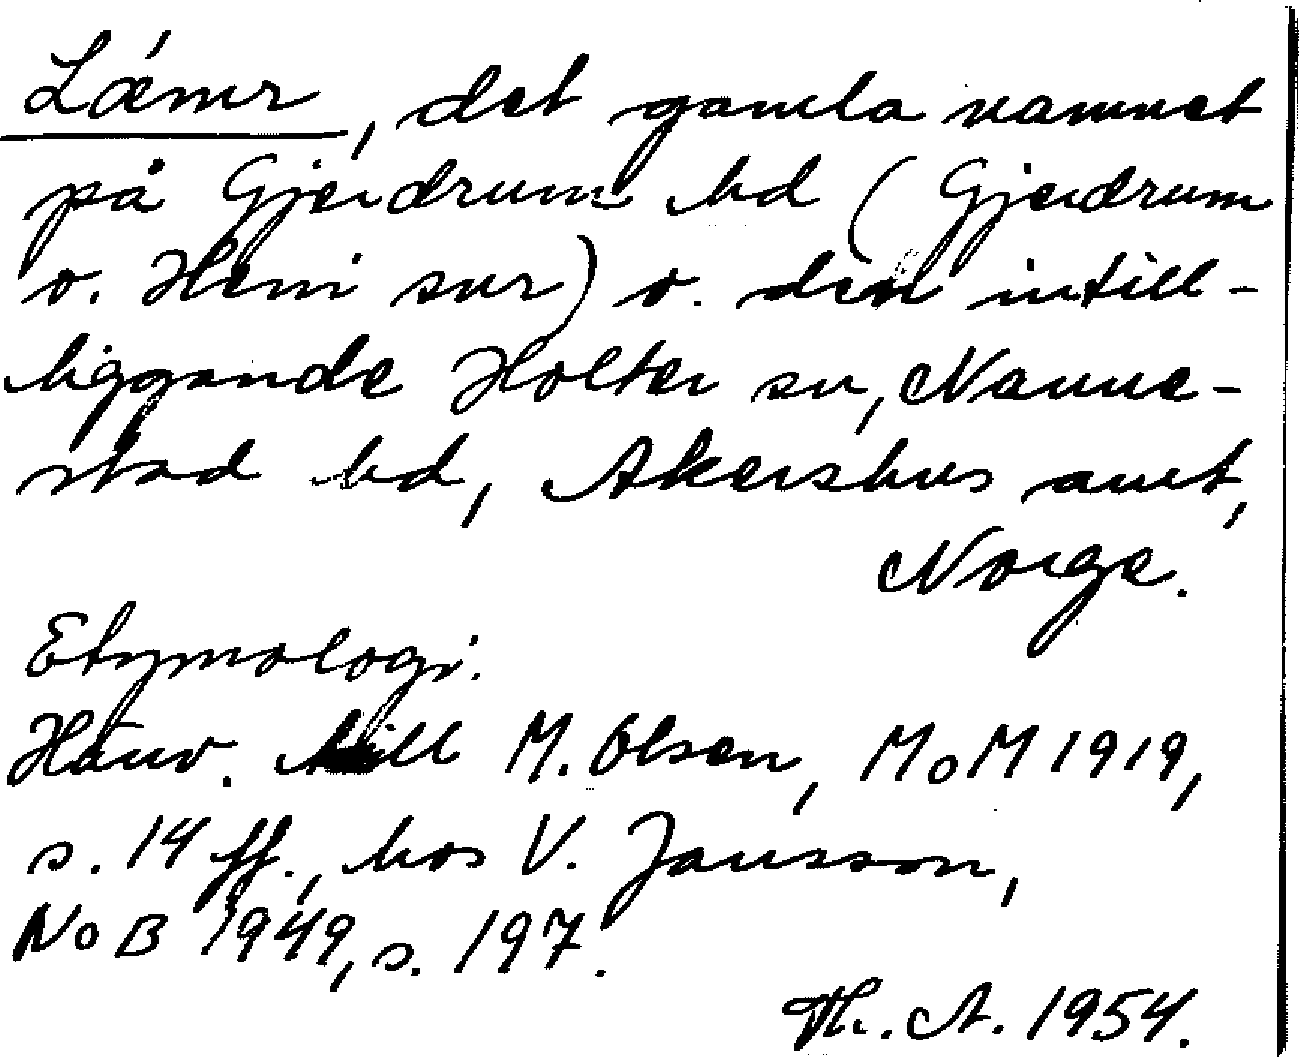 Lǽmr, det gamla namnet
på Gjerdrum hd (Gjerdrum
o. Heni snr) o. den intill-
liggande Holter sn, Nanne-
stad hd, Akershus amt,
Norge.
Etymologi.
Hänv. till M. Olsen, MoM 1919,
s. 14 ff., hos V. Jansson,
NoB 1949, s. 197.
Th. A. 1954.